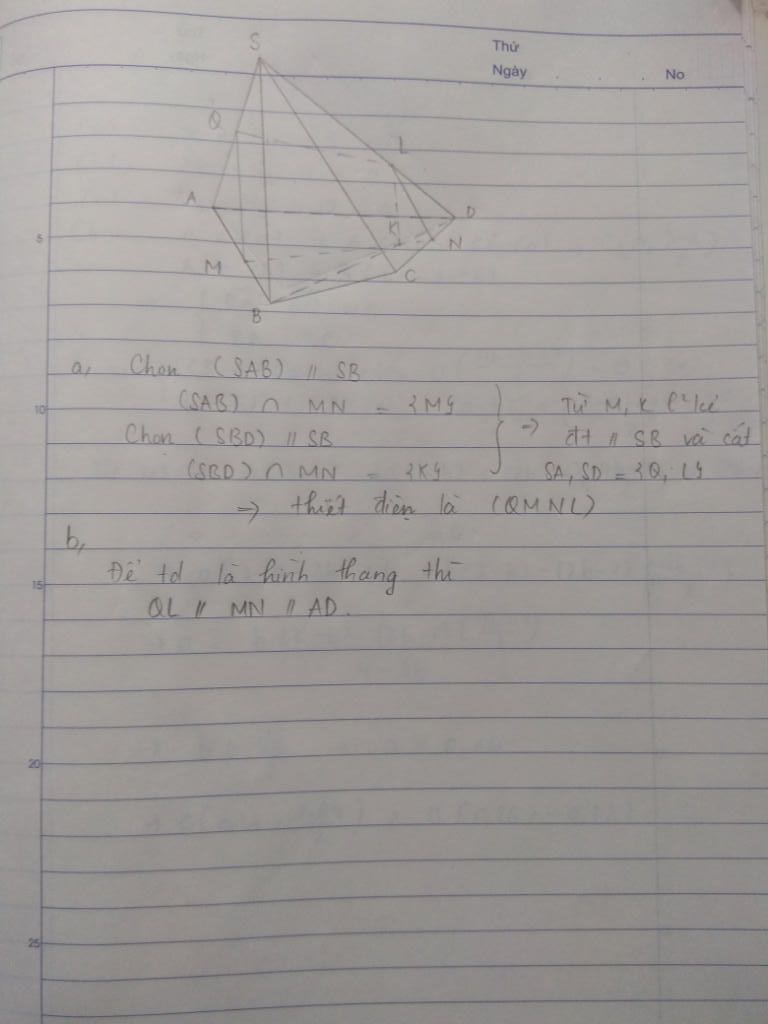 Thứ
Ngày . . . No
S
Q
L
A
D
K
N
M
C
B
5
a, Chọn (SAB) // SB
10 (SAB) ∩ MN = {M}
Chọn (SBD) // SB
(SBD) ∩ MN = {K}
⇒ Từ M, K kẻ
đt // SB và cắt
SA, SD = {Q, L}
⇒ thiết diện là (QMNL)
b,
15 Để td là hình thang thì
QL // MN // AD.
20
25